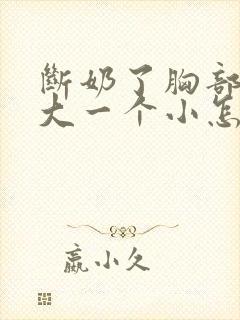 斷奶了胸部
大一个小怎
嬴小久